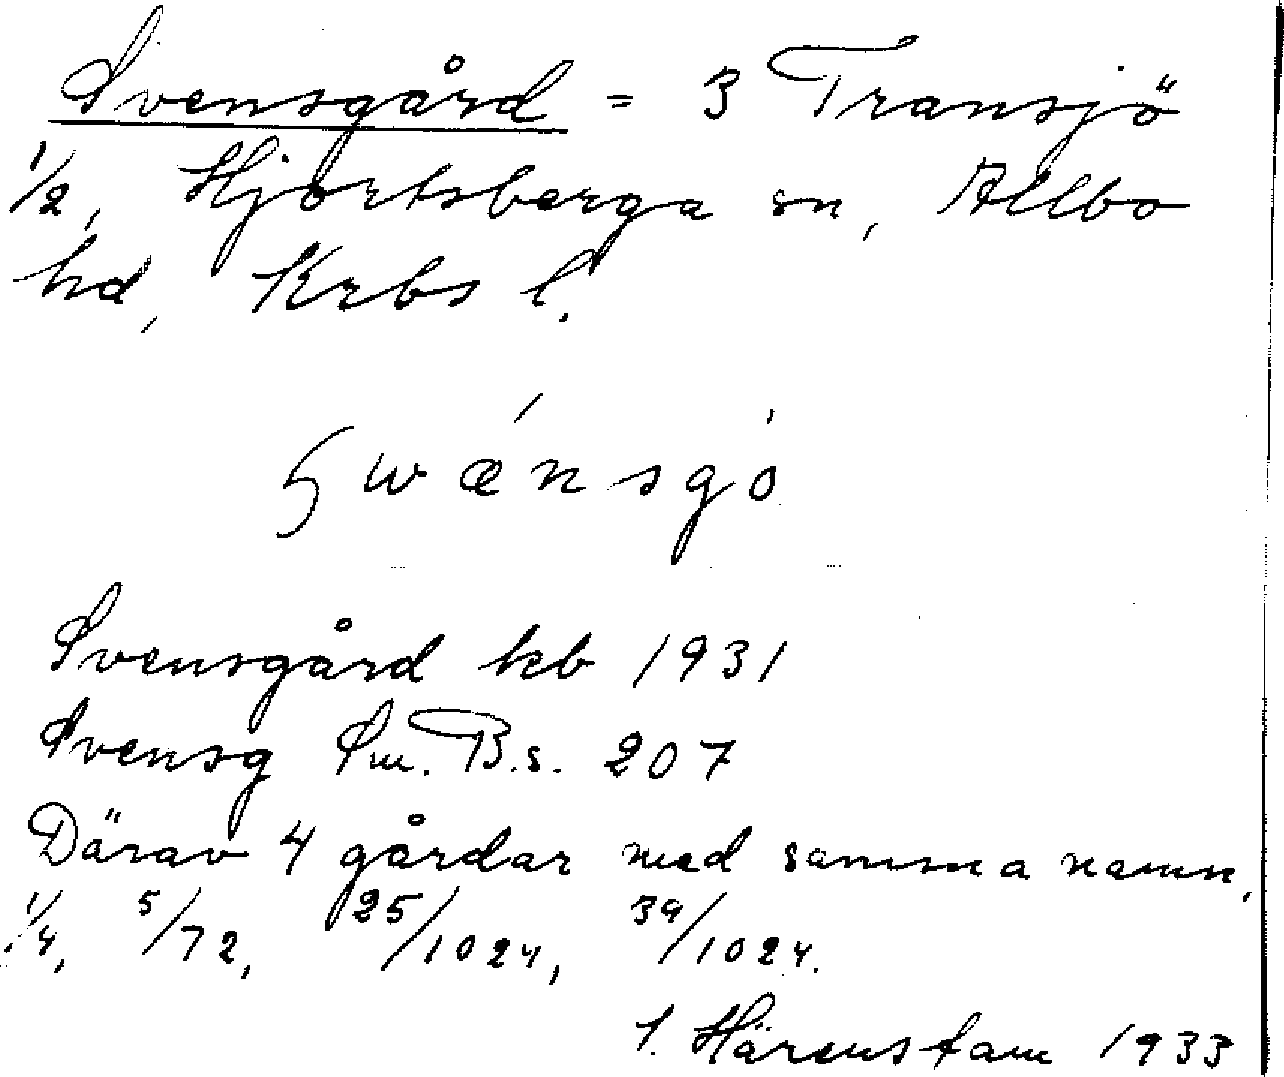 Svensgård = 3 Transjö
1/2, Hjortsberga sn, Allbo
hd, Krbs l.
Swænsgó
Svensgård kb 1931
Svensg Sm. B.s. 207
Därav 4 gårdar med samma namn,
1/4, 5/72, 25/1024, 39/1024.
Härenstam 1933